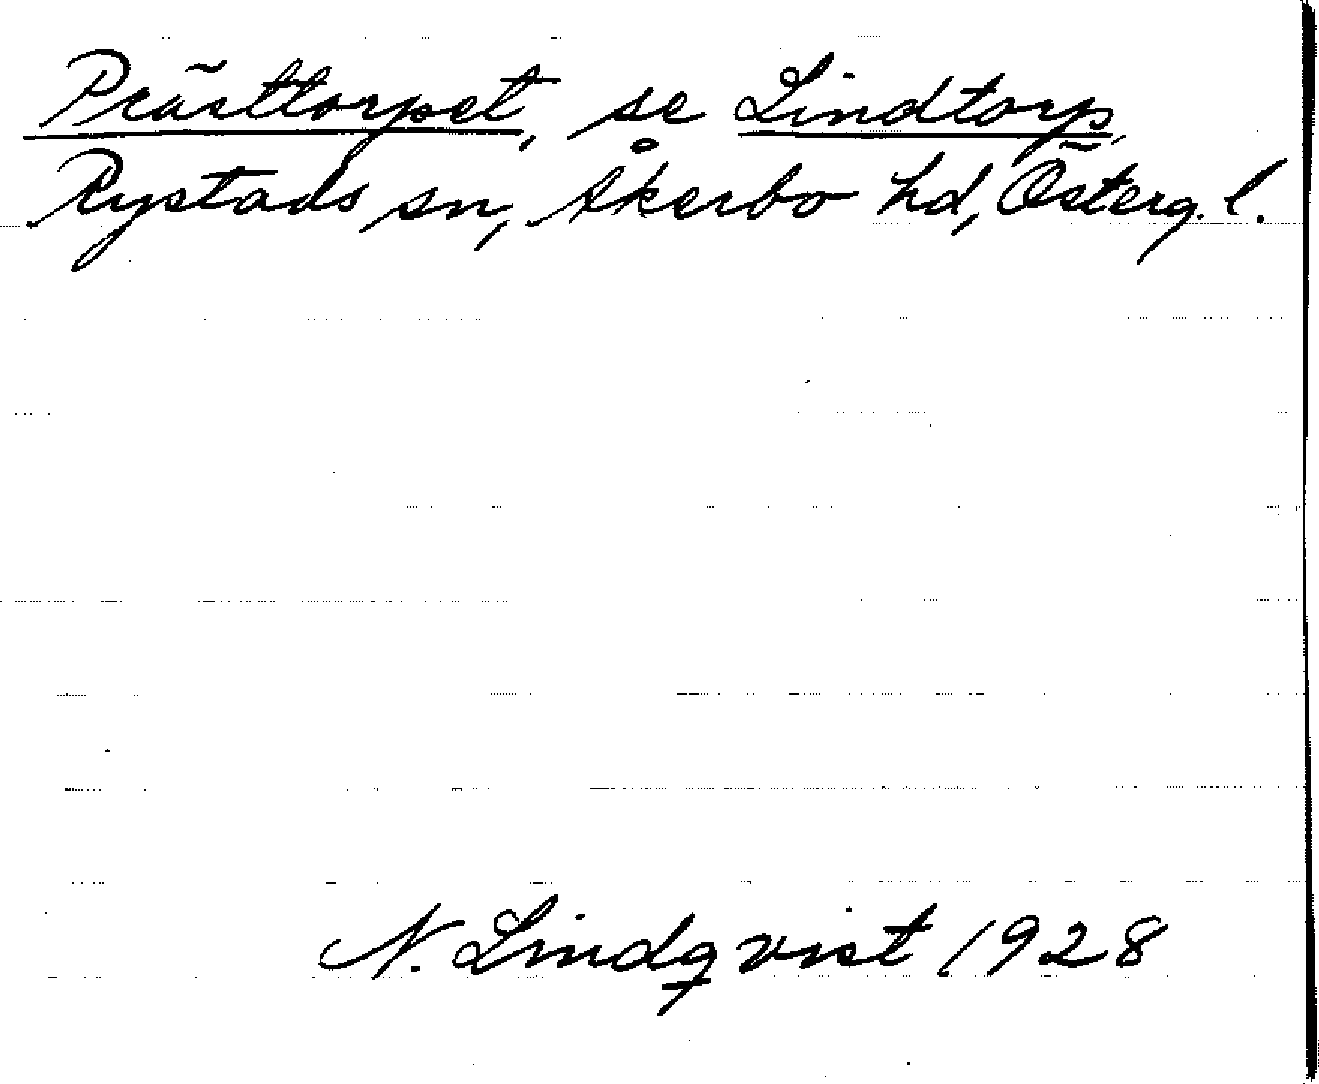 Prästtorpet, se Lindtorp,
Rystads sn, Åkerbo hd, Österg. l.
N. Lindqvist 1928